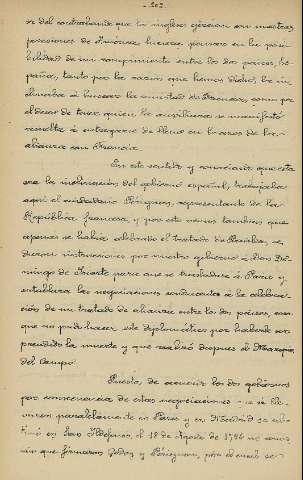 - 203 -
se del contrabando que los ingleses ejercían en nuestras
posesiones de América hiciese pensar en la posi-
bilidad de un rompimiento entre los dos países, Es-
paña, tanto por las razones que hemos dicho, se in-
clinaba a buscar la amistad de Francia, como por
el deseo de tener quien la auxiliase se manifestó
resuelta a entregarse de lleno en brazos de la
alianza con Francia.
En este sentido y conociendo que esta
era la inclinación del gobierno español, trabajaba
aquí el ciudadano Pérignon, representante de la
República francesa, y por esto vemos también que
apenas se había celebrado el tratado de Basilea, se
dieron instrucciones por nuestro gobierno a Don Do-
mingo de Iriarte para que se trasladara a París y
entablara las negociaciones conducentes a la celebra-
ción de un tratado de alianza entre los dos países, cosa
que no pudo hacer este diplomático por haberle sor-
prendido la muerte y que realizó después el Marqués
del Campo.
Puestos de acuerdo los dos gobiernos
por consecuencia de estas negociaciones - que se lle-
varon paralelamente en París y en Madrid se rati-
ficó en San Ildefonso, el 18 de Agosto de 1796 un conve-
nio que firmaron Godoy y Pérignon, por el cual se